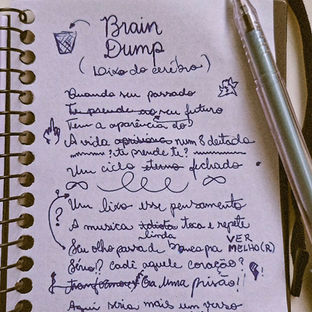 Brain
Dump
(Lixo do cérebro)
Quando seu passado
Te prende ao seu futuro
Tem a aparência do?
A vida aprisiona num 8 deitado
? te prende te?
Um ciclo eterno fechado
Um lixo esse pensamento
A musica idiota toca e repete
linda
Seu olho passa de pra VER
MELHO(R)
Sério? Cadê aquele coração?
Era Uma prisão!
Aqui seria mais um verso